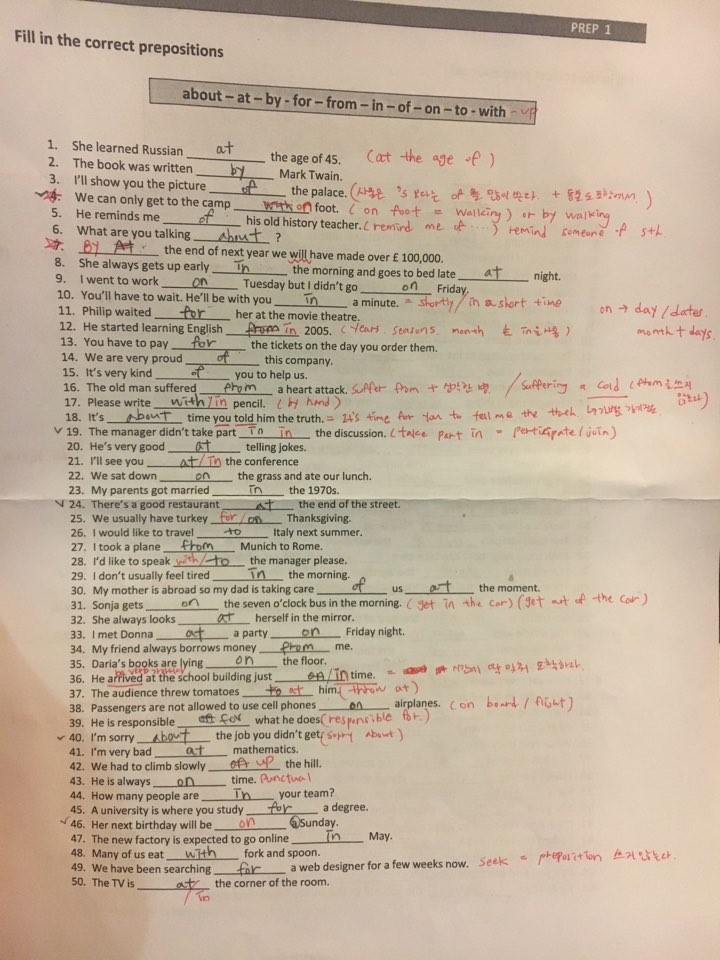 PREP 1
Fill in the correct prepositions
about – at – by - for – from – in – of – on – to - with - up
1. She learned Russian at the age of 45. (at the age of)
2. The book was written by Mark Twain.
3. I'll show you the picture of the palace.
4. We can only get to the camp with on foot. (on foot = walking) or by walking
5. He reminds me of his old history teacher. (remind me of ....) remind someone of sth
6. What are you talking about ?
7. By At the end of next year we will have made over £ 100,000.
8. She always gets up early in the morning and goes to bed late at night.
9. I went to work on Tuesday but I didn't go on Friday.
10. You'll have to wait. He'll be with you in a minute. = shortly / in a short time
on → day / dates.
11. Philip waited for her at the movie theatre.
month + days.
12. He started learning English from in 2005. (years seasons month
13. You have to pay for the tickets on the day you order them.
14. We are very proud of this company.
15. It's very kind of you to help us.
16. The old man suffered from a heart attack. suffer from + / suffering a cold
17. Please write with / in pencil. (by hand)
18. It's about time you told him the truth. = It's time for you to tell me the
19. The manager didn't take part in in the discussion. (take part in = participate / join)
20. He's very good at telling jokes.
21. I'll see you at / in the conference
22. We sat down on the grass and ate our lunch.
23. My parents got married in the 1970s.
24. There's a good restaurant at the end of the street.
25. We usually have turkey for / on Thanksgiving.
26. I would like to travel to Italy next summer.
27. I took a plane from Munich to Rome.
28. I'd like to speak with / to the manager please.
29. I don't usually feel tired in the morning.
30. My mother is abroad so my dad is taking care of us at the moment.
31. Sonja gets on the seven o'clock bus in the morning. (get in the car) (get out of the car)
32. She always looks at herself in the mirror.
33. I met Donna at a party on Friday night.
34. My friend always borrows money from me.
35. Daria's books are lying on the floor.
36. He arrived at the school building just on / in time. =
37. The audience threw tomatoes to at him. (throw at)
38. Passengers are not allowed to use cell phones on airplanes. (on board / flight)
39. He is responsible of for what he does. (responsible for.)
40. I'm sorry about the job you didn't get. (sorry about)
41. I'm very bad at mathematics.
42. We had to climb slowly up the hill.
43. He is always on time. Punctual
44. How many people are in your team?
45. A university is where you study for a degree.
46. Her next birthday will be on Sunday.
47. The new factory is expected to go online in May.
48. Many of us eat with fork and spoon.
49. We have been searching for a web designer for a few weeks now. seek = preposition
50. The TV is at the corner of the room.
/ in